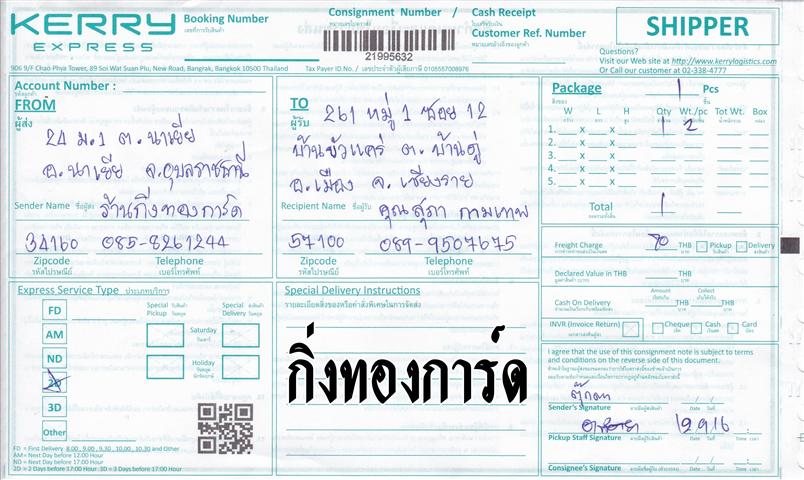 KERRY EXPRESS
Booking Number
เลขที่การรับสินค้า
Consignment Number /
หมายเลขใบตราส่ง
Cash Receipt
ใบเสร็จรับเงิน
Customer Ref. Number
หมายเลขอ้างอิงของลูกค้า
21995632
SHIPPER
Questions?
Visit our Web site at http://www.kerrylogistics.com
Or Call our customer at 02-338-4777
906 9/F Chao Phya Tower, 89 Soi Wat Suan Plu, New Road, Bangrak, Bangkok 10500 Thailand
Tax Payer ID.No. / เลขประจำตัวผู้เสียภาษี 0105557008976
Account Number :
รหัสลูกค้า
FROM
ผู้ส่ง
24 ม.1 ต.นาเยีย
อ.นาเยีย จ.อุบลราชธานี
Sender Name ชื่อผู้ส่ง ร้านกิ่งทองการ์ด
34160 085-8261244
Zipcode Telephone
รหัสไปรษณีย์ เบอร์โทรศัพท์
TO
ผู้รับ
261 หมู่ 1 ซอย 12
บ้านขัวแคร่ ต.บ้านดู่
อ.เมือง จ.เชียงราย
Recipient Name ชื่อผู้รับ คุณสุภา กามเทพ
57100 089-9507675
Zipcode Telephone
รหัสไปรษณีย์ เบอร์โทรศัพท์
Package 1 Pcs
สิ่งของ ชิ้น
W L H Qty Wt./pc Tot Wt. Box
1. x x 1 2
2. x x
3. x x
4. x x
5. x x
Total 1
Freight Charge 70 THB Pickup Delivery
Declared Value in THB THB
Amount Collect
Cash On Delivery THB THB
INVR (Invoice Return) Cheque Cash Card
Express Service Type ประเภทบริการ
Special Pickup
Special Delivery
FD
AM
ND
2D
3D
Other
Saturday
วันเสาร์
Holiday
วันหยุด
นักขัตฤกษ์
FD = First Delivery 8.00 , 9.00 , 9.30 , 10.00 , 10.30 and Other
AM = Next Day before 12:00 Hour
ND = Next Day before 17:00 Hour
2D = 2 Days before 17:00 Hour 3D = 3 Days before 17:00 Hour
Special Delivery Instructions
รายละเอียดสิ่งของหรือคำสั่งพิเศษในการจัดส่ง
กิ่งทองการ์ด
I agree that the use of this consignment note is subject to terms
and conditions on the reverse side of this document.
ตุ๊กตา
Sender's Signature ลายมือชื่อผู้ส่งสินค้า Date วันที่
12.9.16
Pickup Staff Signature Date วันที่ Time เวลา
Consignee's Signature Date วันที่ Time เวลา